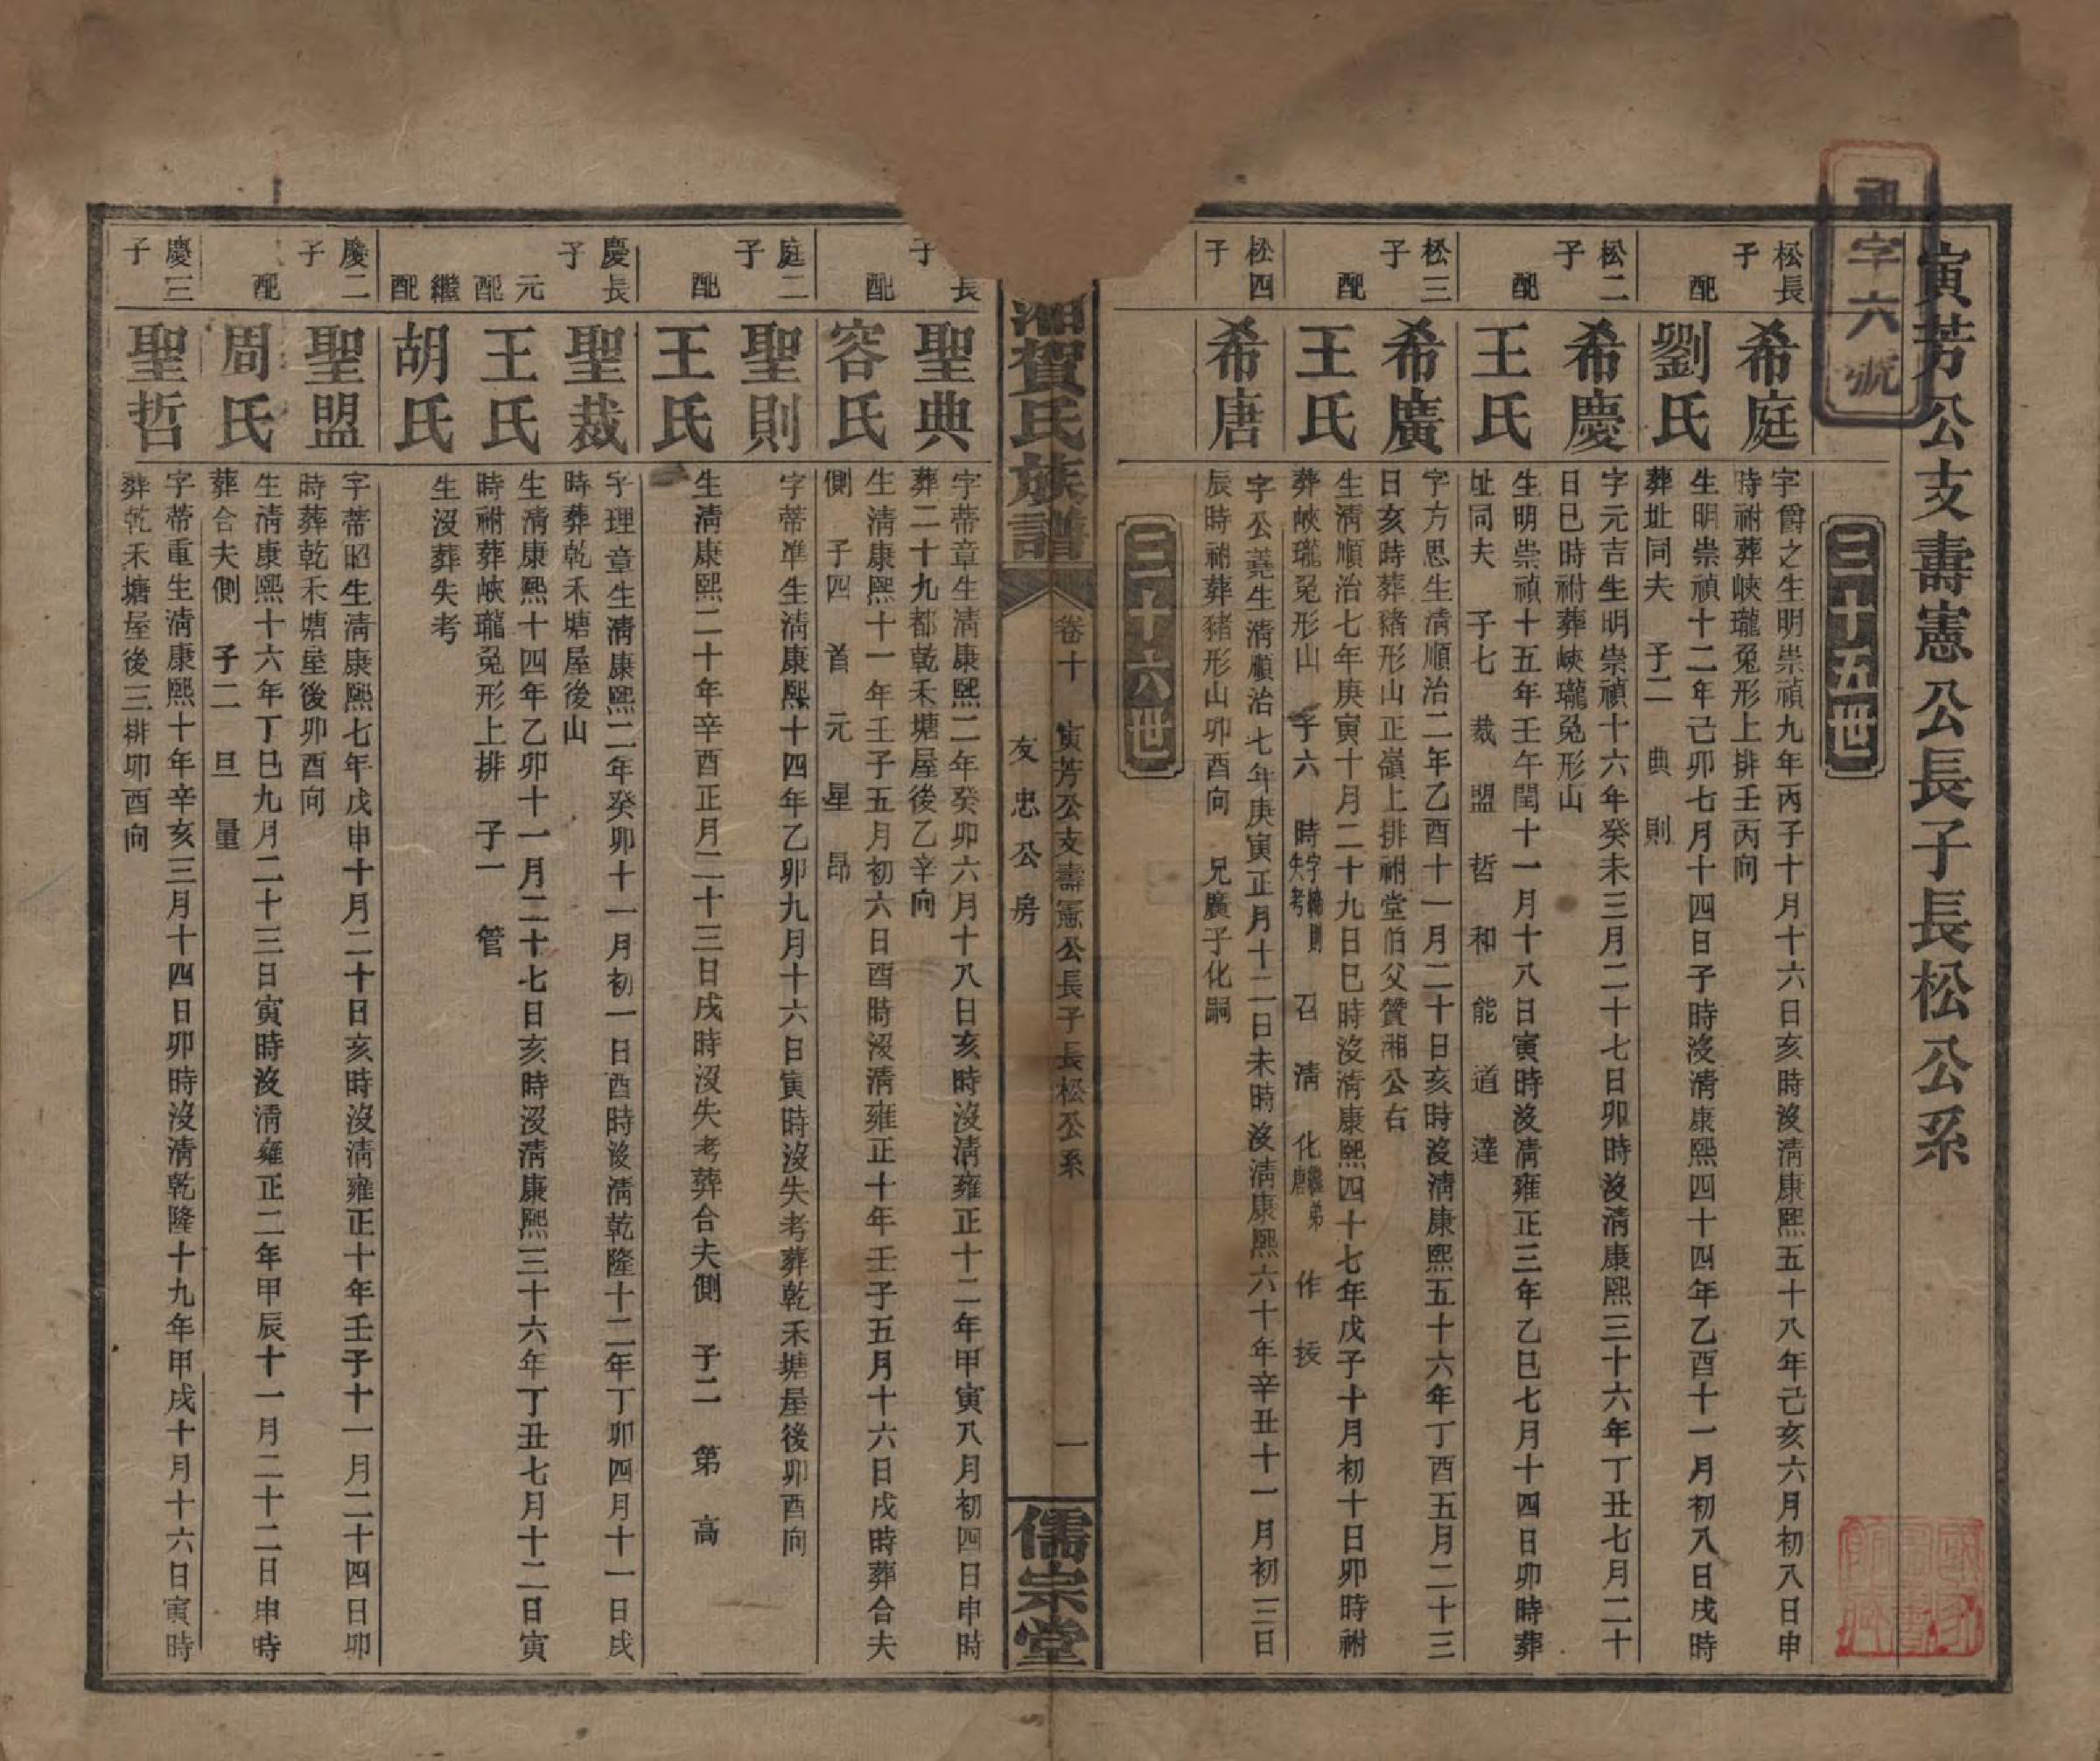 寅芳公支壽憲公長子長松公系
字六號
三十五世
松長子
希庭
字爵之生明崇禎九年丙子十月十六日亥時沒淸康熙五十八年己亥六月初八日申
時祔葬峽瓏兔形上排壬丙向
配
劉氏
生明崇禎十二年己卯七月十四日子時沒淸康熙四十四年乙酉十一月初八日戌時
葬址同夫 子二 典 則
松二子
希慶
字元吉生明崇禎十六年癸未三月二十七日卯時沒淸康熙三十六年丁丑七月二十
日巳時祔葬峽瓏兔形山
配
王氏
生明崇禎十五年壬午閏十一月十八日寅時沒淸雍正三年乙巳七月十四日卯時葬
址同夫 子七 裁 盟 哲 和 能 道 達
松三子
希廣
字方思生淸順治二年乙酉十一月二十日亥時沒淸康熙五十六年丁酉五月二十三
日亥時葬豬形山正嶺上排祔堂伯父贊湘公右
配
王氏
生淸順治七年庚寅十月二十九日巳時沒淸康熙四十七年戊子十月初十日卯時祔
葬峽瓏兔形山 子六 時字 則失考 召 淸 化繼弟唐 作 拔
松四子
希唐
字公堯生淸順治七年庚寅正月十二日未時沒淸康熙六十年辛丑十一月初三日
辰時祔葬豬形山卯酉向 兄廣子化嗣
三十六世
湘賀氏族譜
卷十 寅芳公支壽憲公長子長松公系
友忠公房
一
儒宗堂
長子
聖典
字蒂章生淸康熙二年癸卯六月十八日亥時沒淸雍正十二年甲寅八月初四日申時
葬二十九都乾禾塘屋後乙辛向
配
容氏
生淸康熙十一年壬子五月初六日酉時沒淸雍正十年壬子五月十六日戌時葬合夫
側 子四 首 元 星 昂
庭二子
聖則
字蒂準生淸康熙十四年乙卯九月十六日寅時沒失考葬乾禾塘屋後卯酉向
配
王氏
生淸康熙二十年辛酉正月二十三日戌時沒失考葬合夫側 子二 第 高
慶長子
聖裁
字理章生淸康熙二年癸卯十一月初一日酉時沒淸乾隆十二年丁卯四月十一日戌
時葬乾禾塘屋後山
元配
王氏
生淸康熙十四年乙卯十一月二十七日亥時沒淸康熙三十六年丁丑七月十二日寅
時祔葬峽瓏兔形上排 子一 管
繼配
胡氏
生沒葬失考
慶二子
聖盟
字蒂昭生淸康熙七年戊申十月二十日亥時沒淸雍正十年壬子十一月二十四日卯
時葬乾禾塘屋後卯酉向
配
周氏
生淸康熙十六年丁巳九月二十三日寅時沒淸雍正二年甲辰十一月二十二日申時
葬合夫側 子二 旦 量
慶三子
聖哲
字蒂重生淸康熙十年辛亥三月十四日卯時沒淸乾隆十九年甲戌十月十六日寅時
葬乾禾塘屋後三排卯酉向